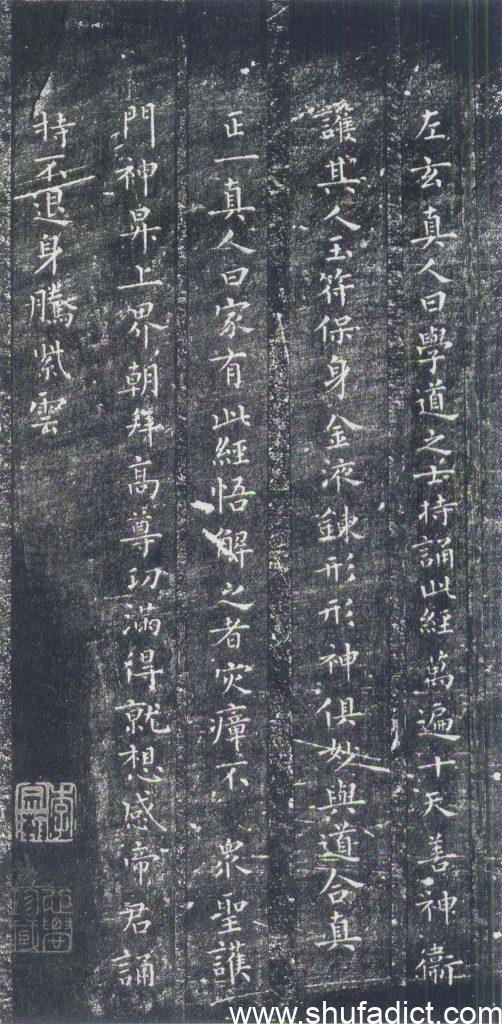 左玄真人曰學道之士持誦此經萬遍十天善神衞
護其人玉符保身金液鍊形形神俱妙與道合真
正一真人曰家有此經悟解之者灾瘴不 衆聖護
門神昇上界朝拜高尊功滿得就想感帝君誦
持不退身騰紫雲
www.shufadict.com